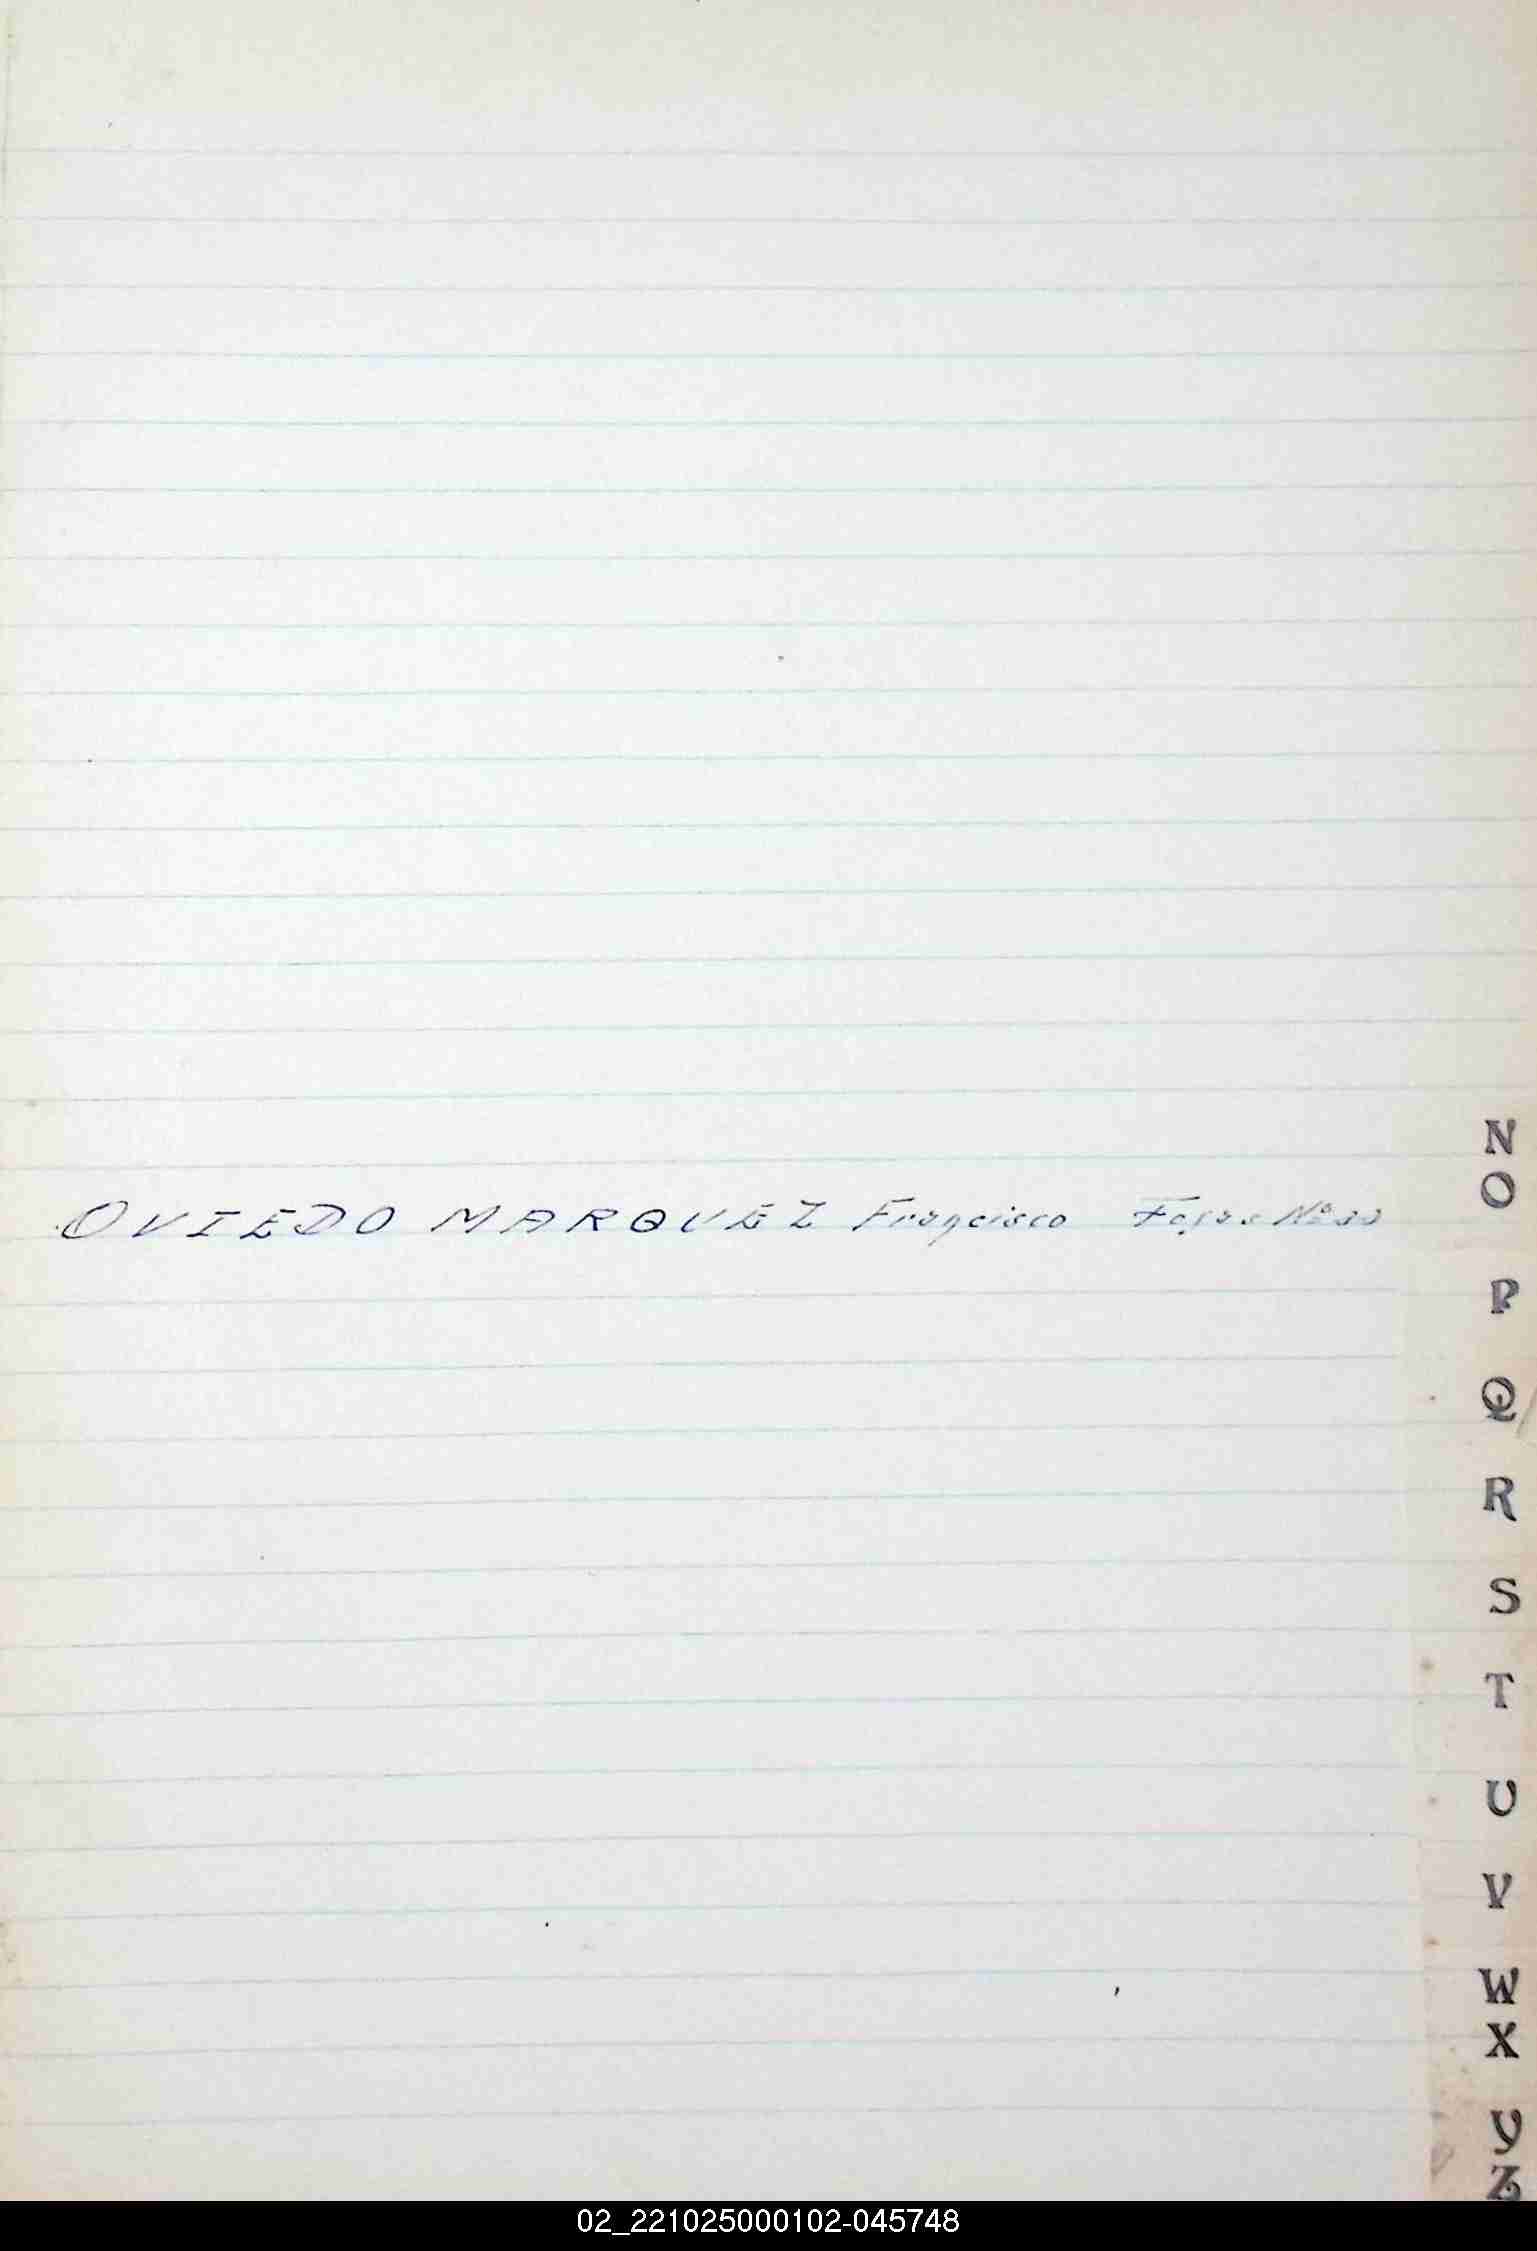 OVIEDO MARQUEZ Francisco Fojas Nº
N
O
P
Q
R
S
T
U
V
W
X
Y
Z
02_221025000102-045748